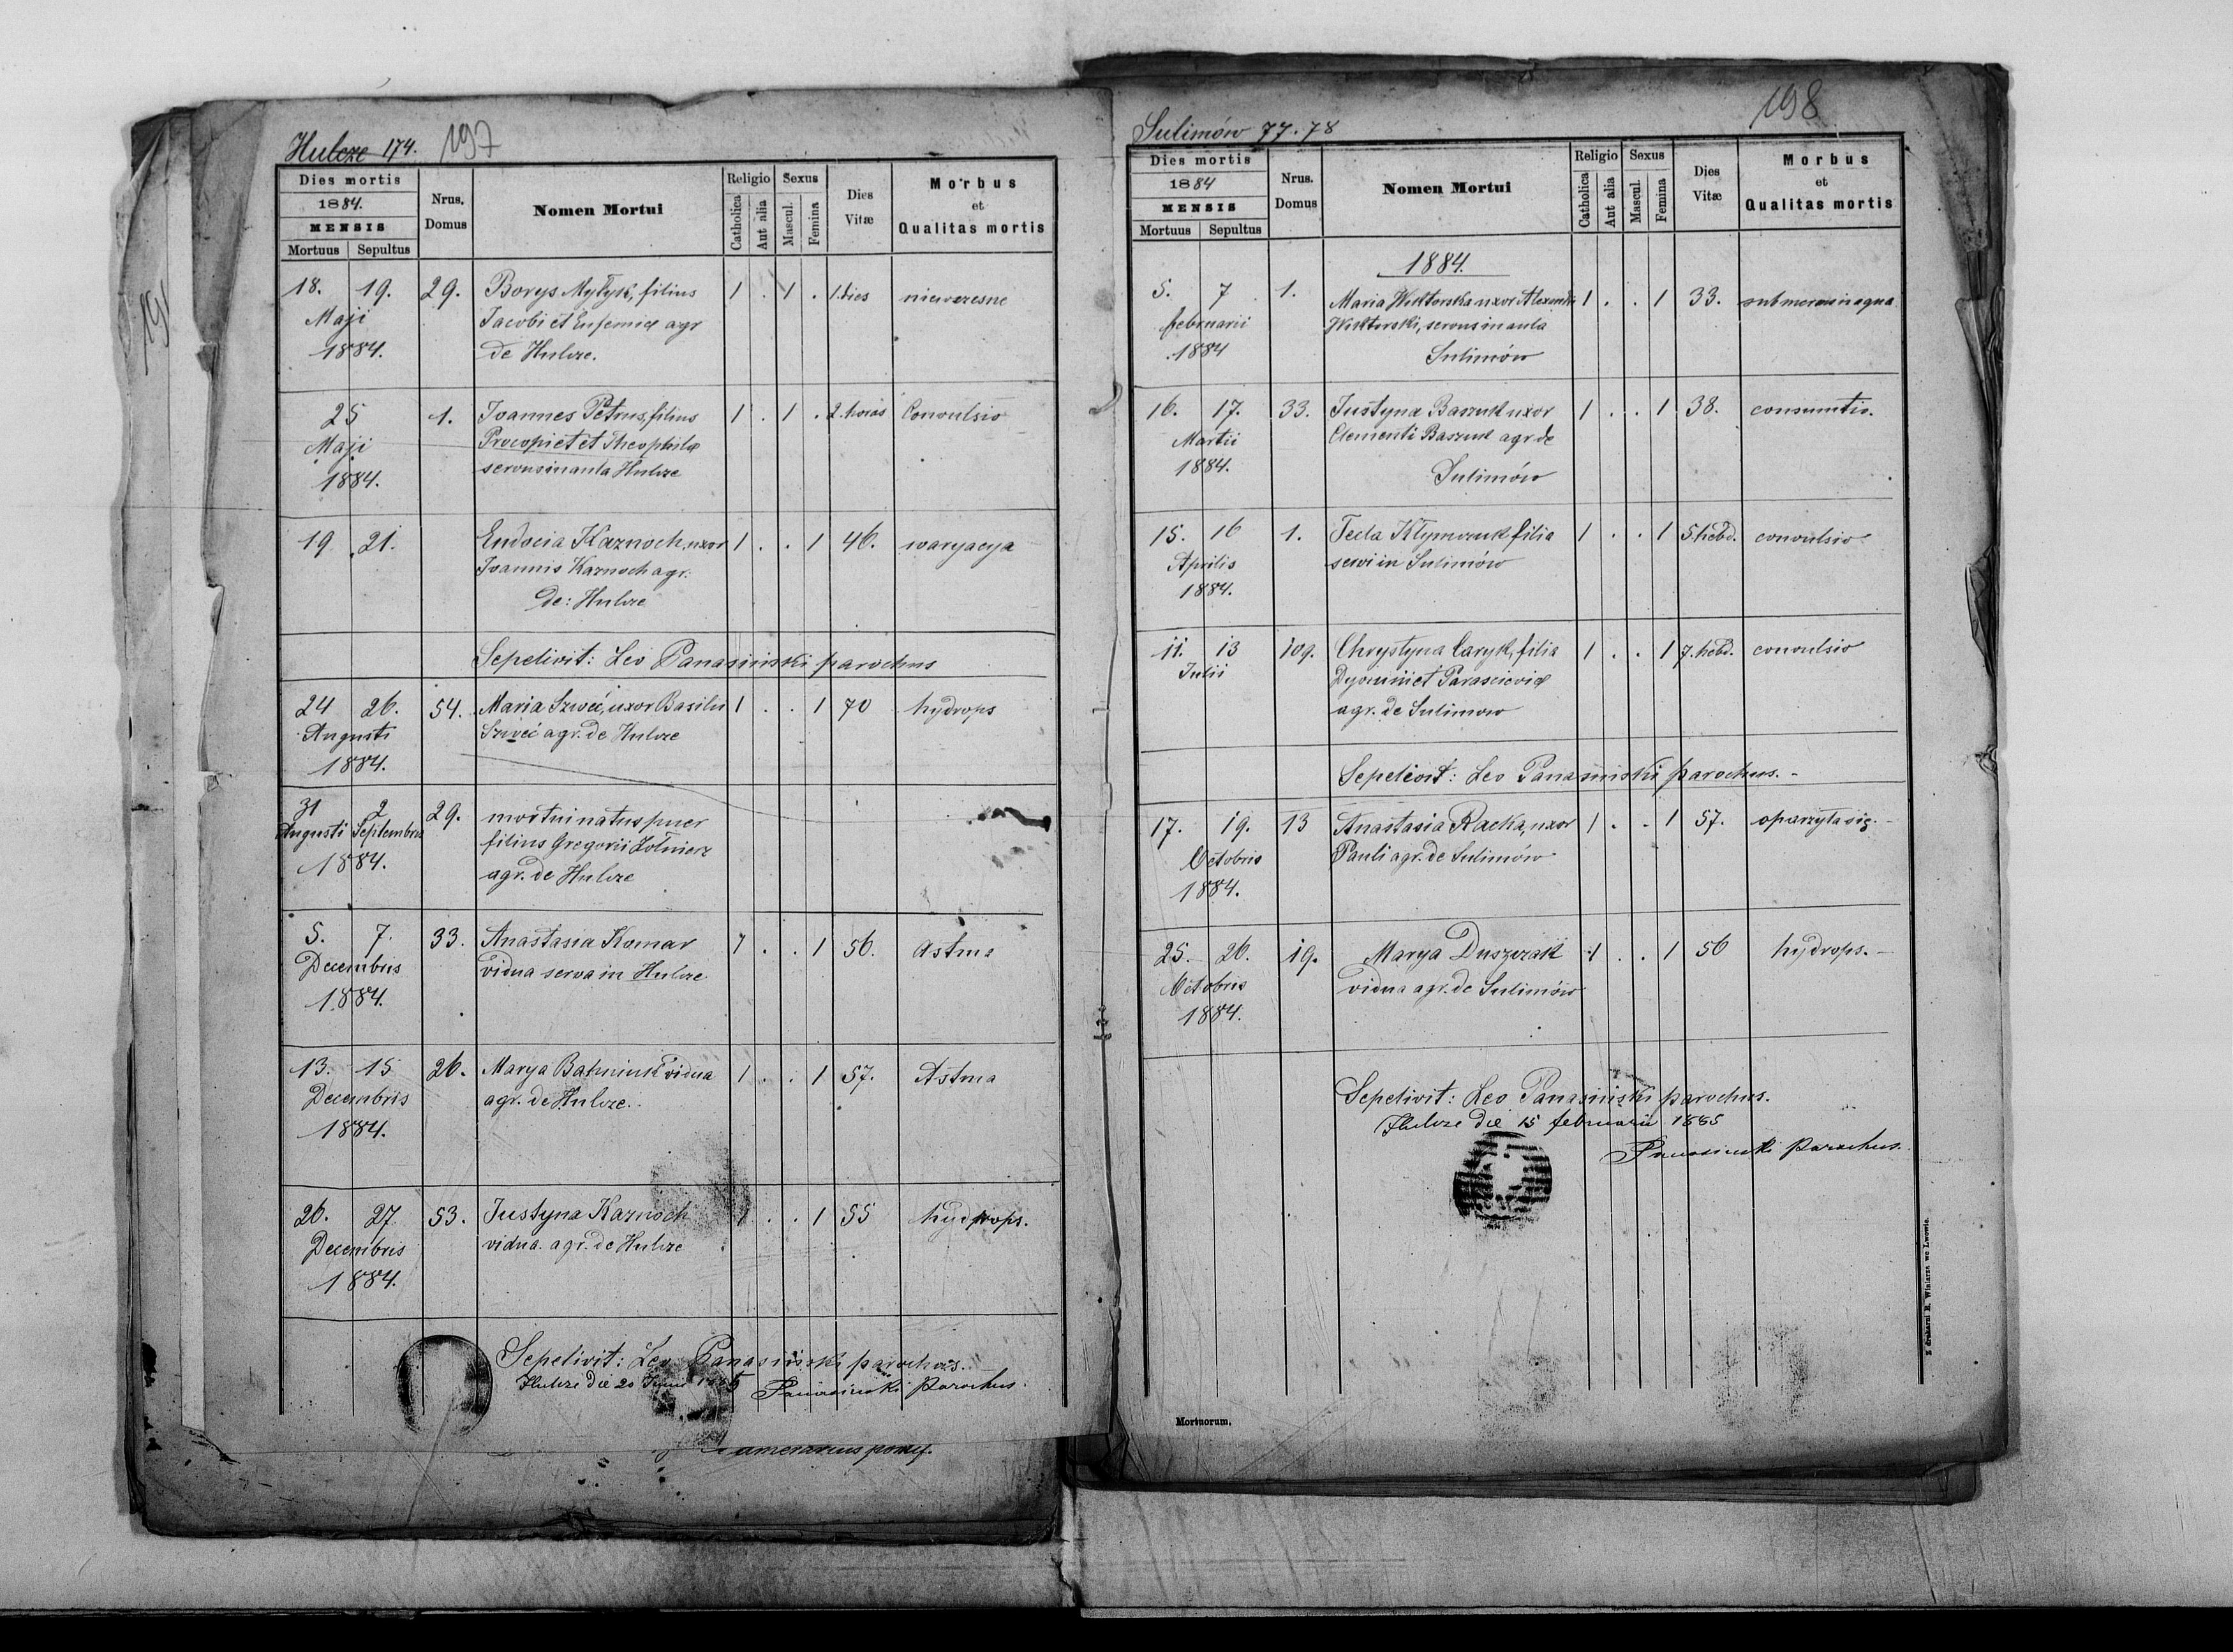 Hulcze 174. 197
Dies mortis
1884.
MENSIS
Mortuus Sepultus
Nrus. Domus
Nomen Mortui
Religio
Catholica
Aut alia
Sexus
Mascul.
Femina
Dies Vitæ
Morbus
et
Qualitas mortis
18. 19. 29. Borys Mytyk, filius 1 . 1 . 1. dies niewczesne
Maji Jacobi et Eufemiæ agr
1884. de Hulcze.
25 1. Joannes Petrus, filius 1 . 1 . 2. horas Convulsio
Maji Procopiet et Theophilæ
1884. servus in aula Hulcze
19 21. Eudocia Kaznoch, uxor 1 . . 1 46. waryacya
Joannis Kaznoch agr.
de: Hulcze
Sepelivit: Leo Panasiński parochus
24 26. 54. Maria Szweć, uxor Basilii 1 . . 1 70 hydrops
Augusti Szweć agr. de Hulcze
1884.
31 2 29. mortui natus puer
Augusti Septembris filius Gregorii Żołnierz
1884. agr. de Hulcze
5. 7. 33. Anastasia Komar 1 . . 1 56. Astma
Decembris vidua serva in Hulcze
1884.
13. 15 26. Marya vidua 1 . . 1 57. Astma
Decembris agr. de Hulcze.
1884.
26. 27 53. Justyna Kaznoch 1 . . 1 55 hydrops.
Decembris vidua agr. de Hulcze
1884.
Sepelivit: Leo Panasiński parochus.
Hulcze die 20 Panasiński Parochus
Sulimów 77. 78 198
Dies mortis
1884
MENSIS
Mortuus Sepultus
Nrus. Domus
Nomen Mortui
Religio
Catholica
Aut alia
Sexus
Mascul.
Femina
Dies Vitæ
Morbus
et
Qualitas mortis
1884.
5. 7 1. Maria Wiktorska uxor Alexandri 1 . . 1 33. submersus in aqua
februarii Wiktorski, servus in aula
1884 Sulimów
16. 17. 33. Justyna Baszuk uxor 1 . . 1 38. consumtio.
Martii Clementi Baszuk agr. de
1884. Sulimów
15. 16 1. Tecla Klymczuk filia 1 . . 1 5. hebd. convulsio
Aprilis servi in Sulimów
1884.
11. 13 109. Chrystyna Caryk, filia 1 . . 1 7. hebd. convulsio
Julii et Parasceviæ
agr. de Sulimow
Sepelivit: Leo Panasiński parochus.
17. 19. 13 Anastasia Racka, uxor 1 . . 1 57. oparzyła się.
Octobris Pauli agr. de Sulimów
1884.
25. 26. 19. Marya Duszczak 1 . . 1 56 hydrops.
Octobris vidua agr. de Sulimów
1884.
Sepelivit: Leo Panasiński parochus.
Hulcze die 15 februarii 1885
Panasiński Parochus.
Mortuorum.
Z drukarni R. Winiarza we Lwowie.